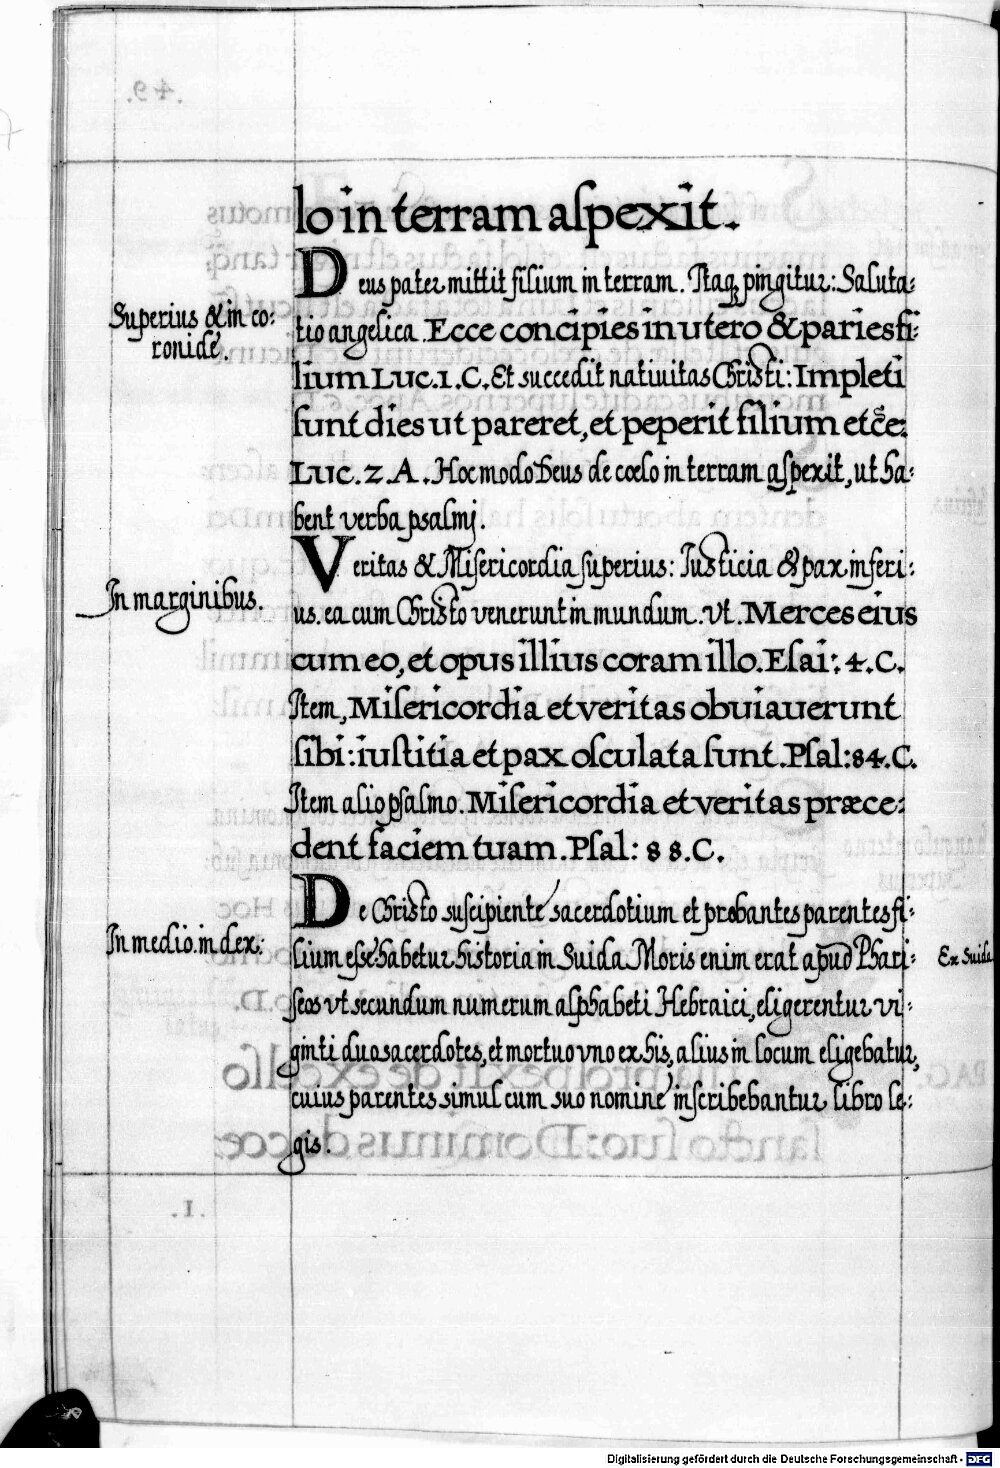 lo in terram aſpexit.
Deus pater mittit filium in terram. Itaq; pingitur: Saluta-
Superius & in co-
ronide.
tio angelica. Ecce concipies in utero & paries fi-
lium Luc. 1. C. Et succedit nativitas Christi: Impleti
ſunt dies ut pareret, et peperit filium etc̄e:
Luc. 2. A. Hoc modo Deus de cœlo in terram aſpexit, ut ha-
bent verba psalmj.
Veritas & Miſericordia ſuperius: Iusticia & pax inferi-
In marginibus.
us. ea cum Christo venerunt in mundum. Vt. Merces eius
cum eo, et opus illius coram illo. Eſai: 4. C.
Item, Miſericordia et veritas obuiauerunt
ſibi: iuſtitia et pax oſculata ſunt. Pſal: 84. C.
Item alio pſalmo. Miſericordia et veritas præce-
dent faciem tuam. Pſal: 88. C.
De Christo suscipiente sacerdotium et probantes parentes fi-
In medio. in dex:
lium eſse habetur historia in Suida Moris enim erat apud Phari-
Ex Suida
ſeos vt secundum numerum alphabeti Hebraici, eligerentur vi-
ginti duo sacerdotes, et mortuo vno ex his, alius in locum eligebatur,
cuius parentes simul cum suo nomine inscribebantur libro le-
gis.
Digitalisierung gefördert durch die Deutsche Forschungsgemeinschaft - DFG